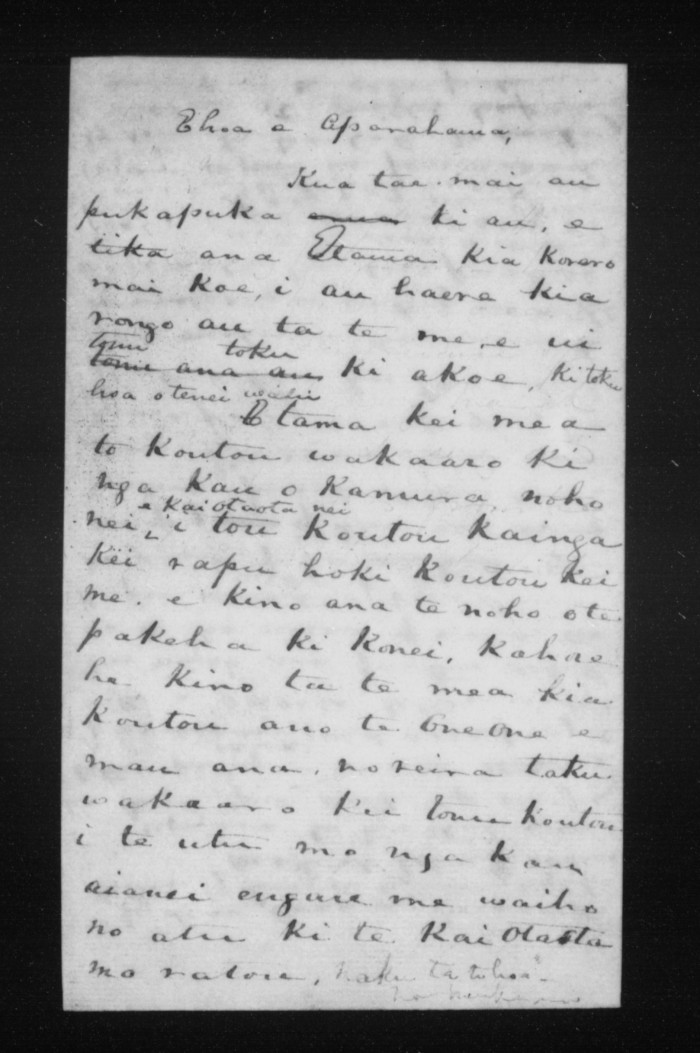 Ehoa e Aparahama,
Kua tae mai au
pukapuka ki au, e
tika ana Etama kia korero
mai koe, i au haere kia
rongo au ta te me, e ui
tonu toku
tonu ana au ki akoe, ki toku
hoa o tenei wahi
Etama kei mea
to koutou wakaaro ki
nga kau o Kamura noho
e kaiotaota nei
nei, i tou koutou kainga
kei rapu hoki koutou kei
me. e kino ana te noho ote
pakeha ki konei, kahore
he kino ta te mea kia
koutou ano te oneone e
mau ana, noreira taku
wakaaro kei tonu koutou
i te utu mo nga kau
aianei engari me waiho
no atu ki te kai Otaota
mo ratou, naku ta tohoa